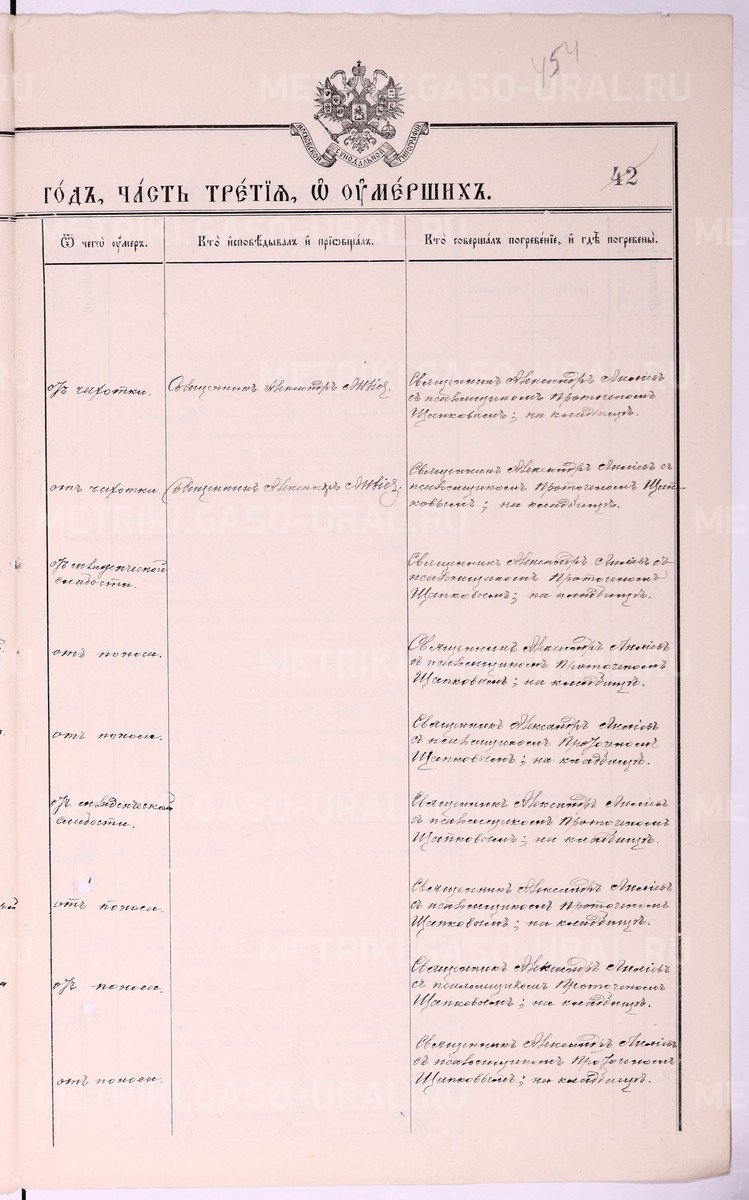 454
METRIKI.GASO-URAL.RU
МОСКОВСКОЙ СѴНОДАЛЬНОЙ ТИПОГРАФІИ
42
ГО́ДЪ, ЧА́СТЬ ТРЕ́ТІѦ, Ѿ ОУМЕ́РШИХЪ.
Ѿ чегѡ̀ оу́меръ.
Кто̀ и҆сповѣ́дывалъ и҆ прїѡбща́лъ.
Кто̀ соверша́лъ погребе́нїе, и҆ гдѣ̀ погребены̀.
отъ чахотки.
Священникъ Александръ
Священникъ Александръ
съ псаломщикомъ Протогеномъ
Щапковымъ; на кладбищѣ.
отъ чахотки
Священникъ Александръ
Священникъ Александръ съ
псаломщикомъ Протогеномъ Щап-
ковымъ; на кладбищѣ.
отъ младенческой
слабости.
Священникъ Александръ съ
псаломщикомъ Протогеномъ
Щапковымъ; на кладбищѣ.
отъ поноса.
Священникъ Александръ
съ псаломщикомъ Протогеномъ
Щапковымъ; на кладбищѣ.
отъ поноса.
Священникъ Александръ
съ псаломщикомъ Протогеномъ
Щапковымъ; на кладбищѣ.
отъ младенческой
слабости.
Священникъ Александръ
съ псаломщикомъ Протогеномъ
Щапковымъ; на кладбищѣ.
отъ поноса.
Священникъ Александръ
съ псаломщикомъ Протогеномъ
Щапковымъ; на кладбищѣ.
отъ поноса.
Священникъ Александръ
съ псаломщикомъ Протогеномъ
Щапковымъ; на кладбищѣ.
отъ поноса.
Священникъ Александръ
съ псаломщикомъ Протогеномъ
Щапковымъ; на кладбищѣ.